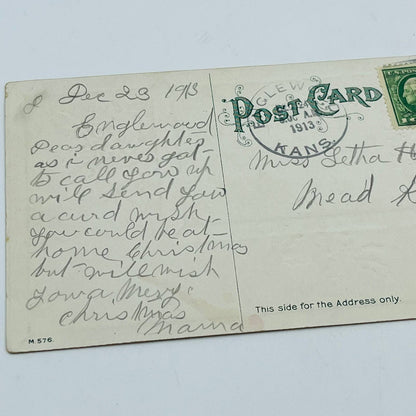 Dec 23 1913
Englewood
Dear daughter
as i never got
to call you up
will send you
a card wish
you could be at
home Christmas
but will wish
you a Mery
christmas
Mama
M. 576.
POST CARD
ENGLEWOOD
DEC 24
1913
KANS.
Miss Letha
Mead
This side for the Address only.